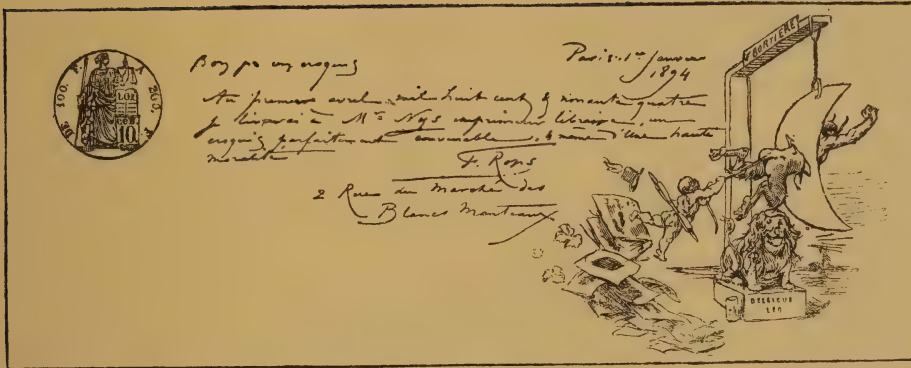 DE 100. F. A 200. F.
LOI
CEN
10
Bon pr un croquis
Paris. 1er Janvier
1894
Au premier avril mil huit cent
quatre
je livrerai à Mr Nys imprimeur libraire, un
croquis parfaitement convenable, & même d'une haute
moralité
F. Rops
2 Rue du Marché des
Blancs Manteaux
BELGICUS
LEO